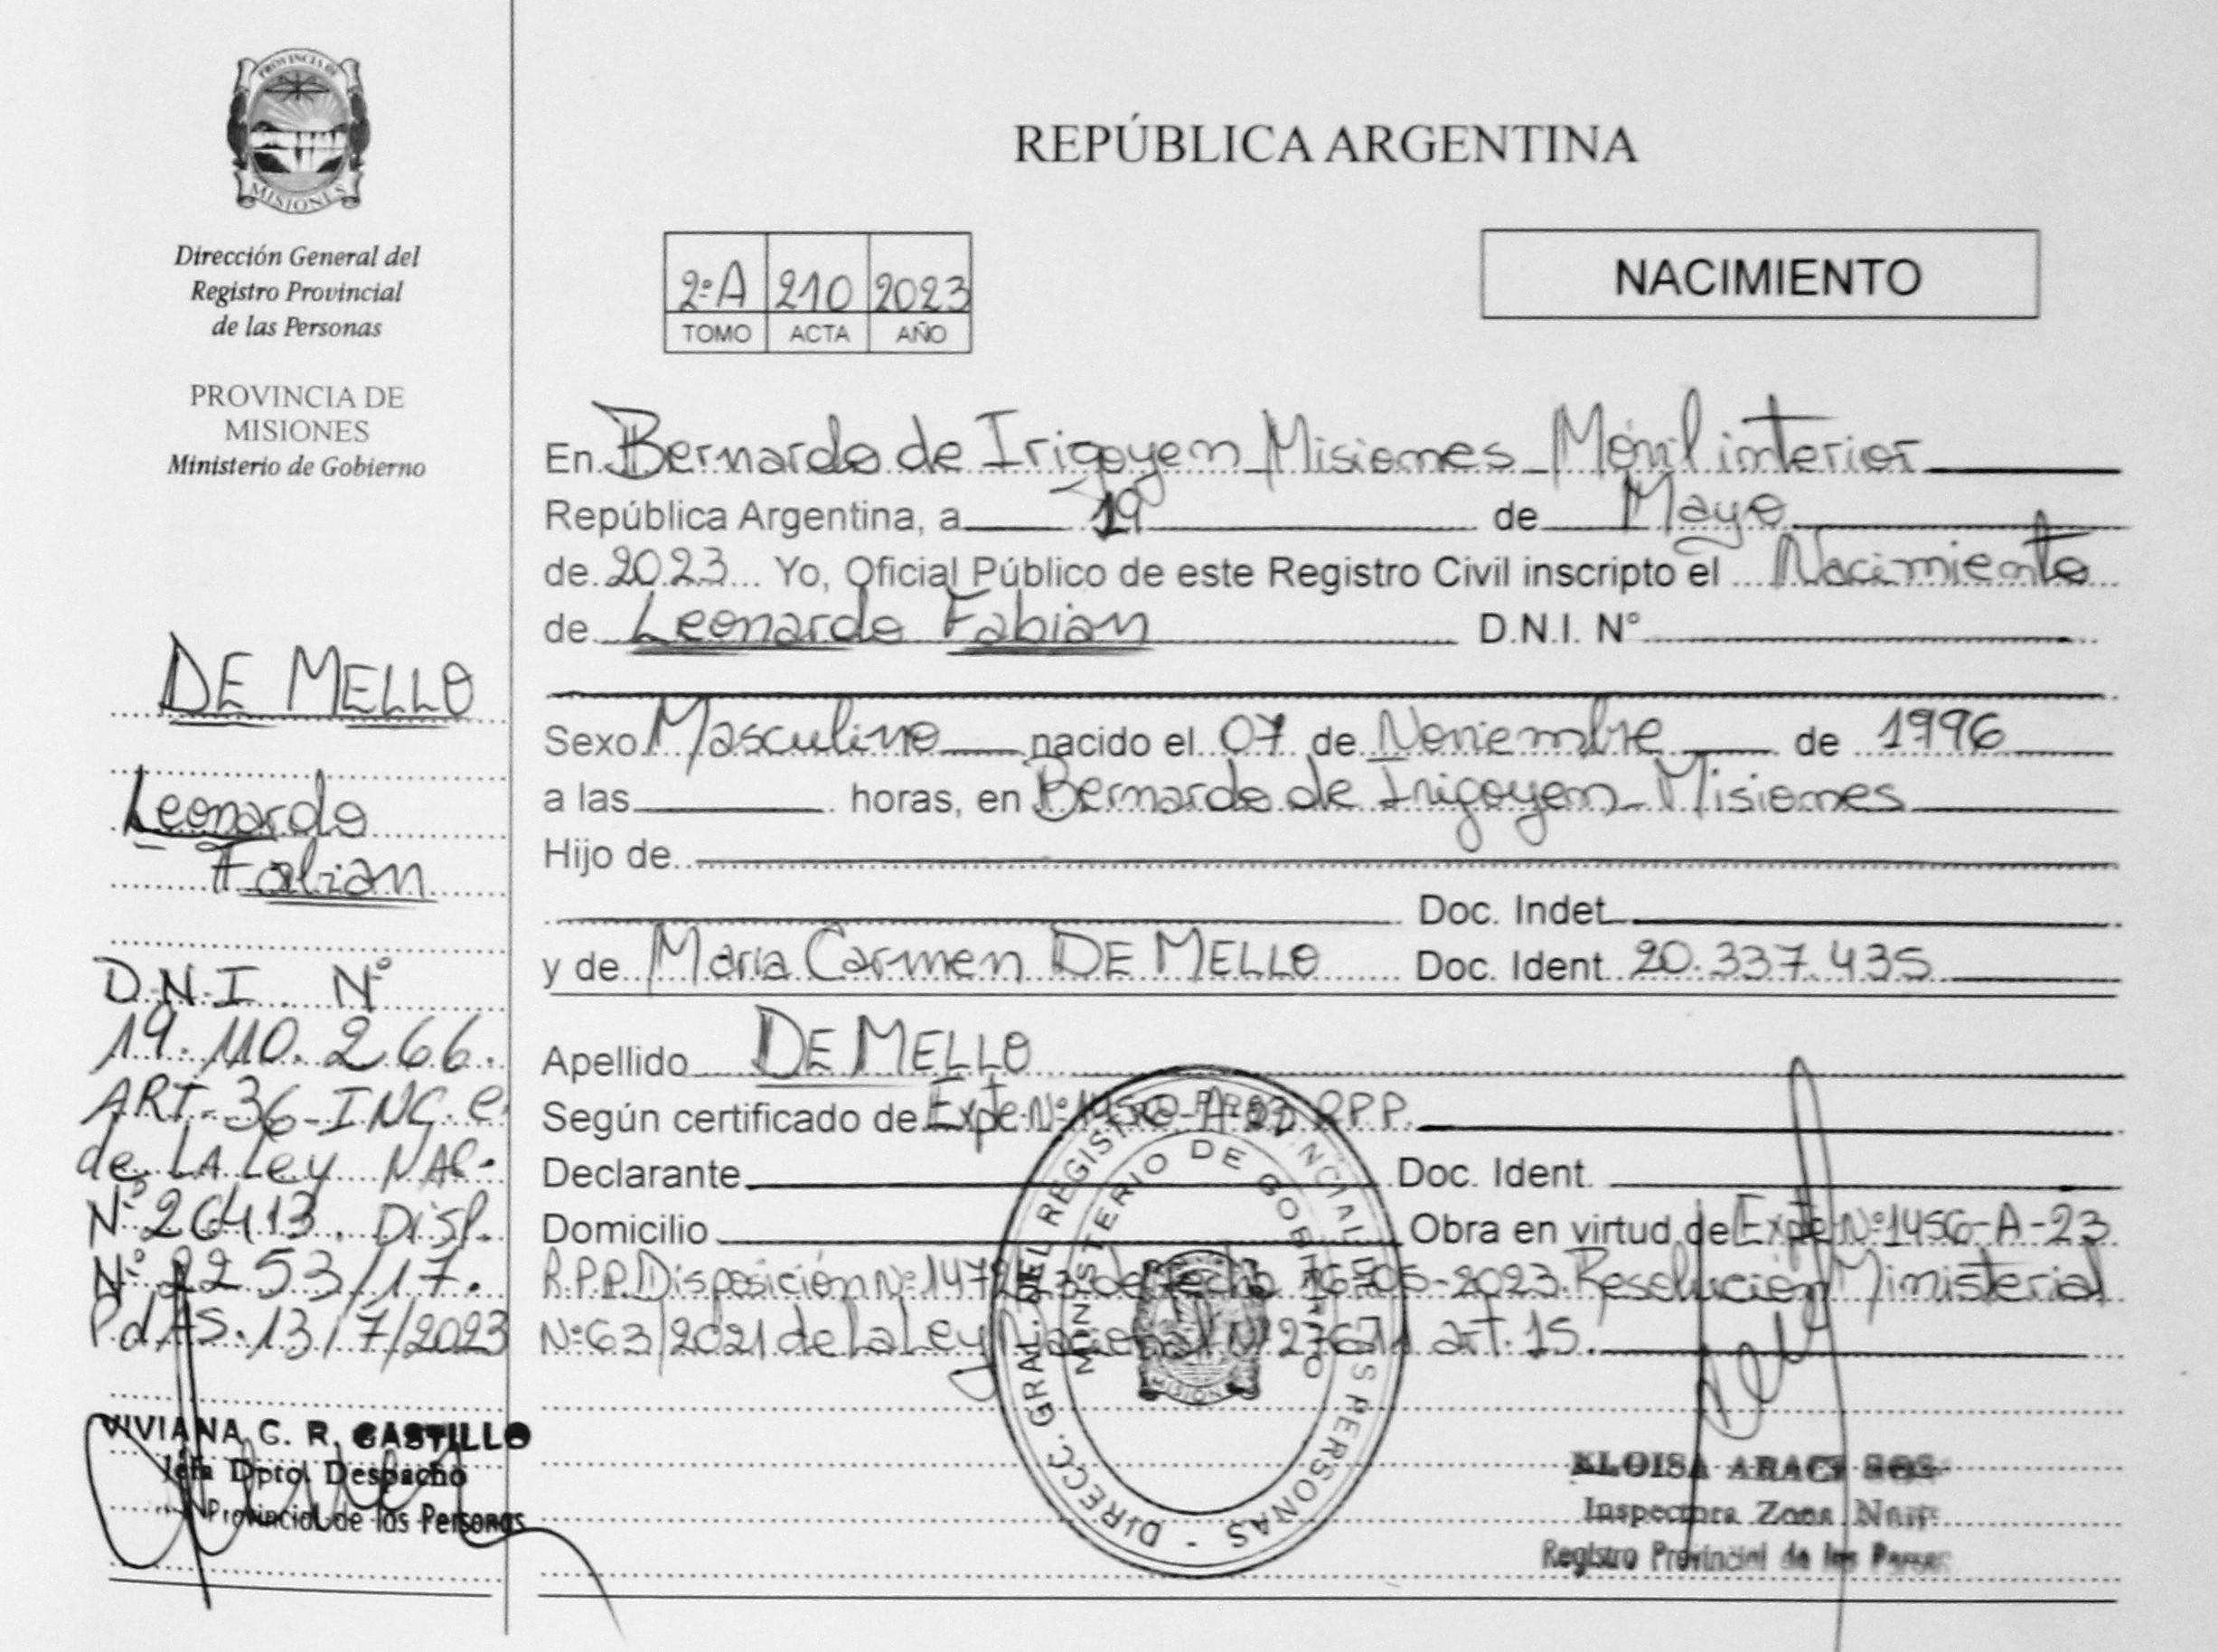 PROVINCIA DE
MISIONES
Dirección General del
Registro Provincial
de las Personas
PROVINCIA DE
MISIONES
Ministerio de Gobierno
DE MELLO
Leonardo
Fabian
D.N.I. Nº
19.110.266.
ART. 36-INC. e
de LA Ley NAC.
Nº 26413. Disp.
Nº 2253/17.
Pdas. 13/7/2023
VIVIANA C. R. CASTILLO
Jefa Dpto. Despacho
Provincial de las Personas
REPÚBLICA ARGENTINA
2ºA 210 2023
TOMO ACTA AÑO
NACIMIENTO
En Bernardo de Irigoyen Misiones Móvil interior
República Argentina, a 19 de Mayo
de 2023 Yo, Oficial Público de este Registro Civil inscripto el Nacimiento
de Leonardo Fabian D.N.I. Nº
Sexo Masculino nacido el 07 de Noviembre de 1996
a las horas, en Bernardo de Irigoyen Misiones
Hijo de
Doc. Indet
y de Maria Carmen DE MELLO Doc. Ident. 20.337.435
Apellido DE MELLO
Según certificado de Expte Nº 1456-A-23 RPP.
Declarante Doc. Ident.
Domicilio Obra en virtud de Expte Nº 1456-A-23
R.P.P. Disposición Nº de fecha 16-05-2023. Resolución Ministerial
Nº 63/2021 de la Ley Nacional Nº art. 15.
DIRECC. GRAL. DEL REGISTRO PROVINCIAL DE LAS PERSONAS -
MINISTERIO DE GOBIERNO
MISIONES
Inspectora Zona
Registro Provincial de las